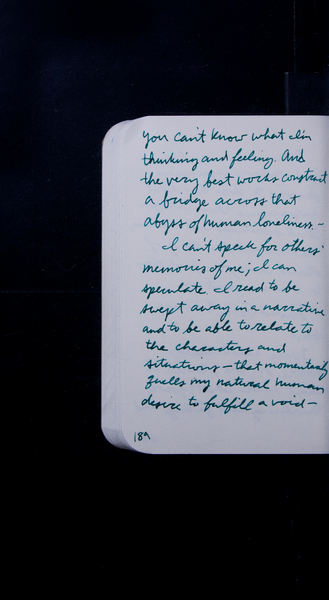 you can't know what I'm
thinking and feeling. And
the very best works construct
a bridge across that
abyss of human loneliness.-
I can't speak for others'
memories of me; I can
speculate. I read to be
swept away in a narrative
and to be able to relate to
the characters and
situations - that momentarily
fuels my natural human
desire to fulfill a void-
189